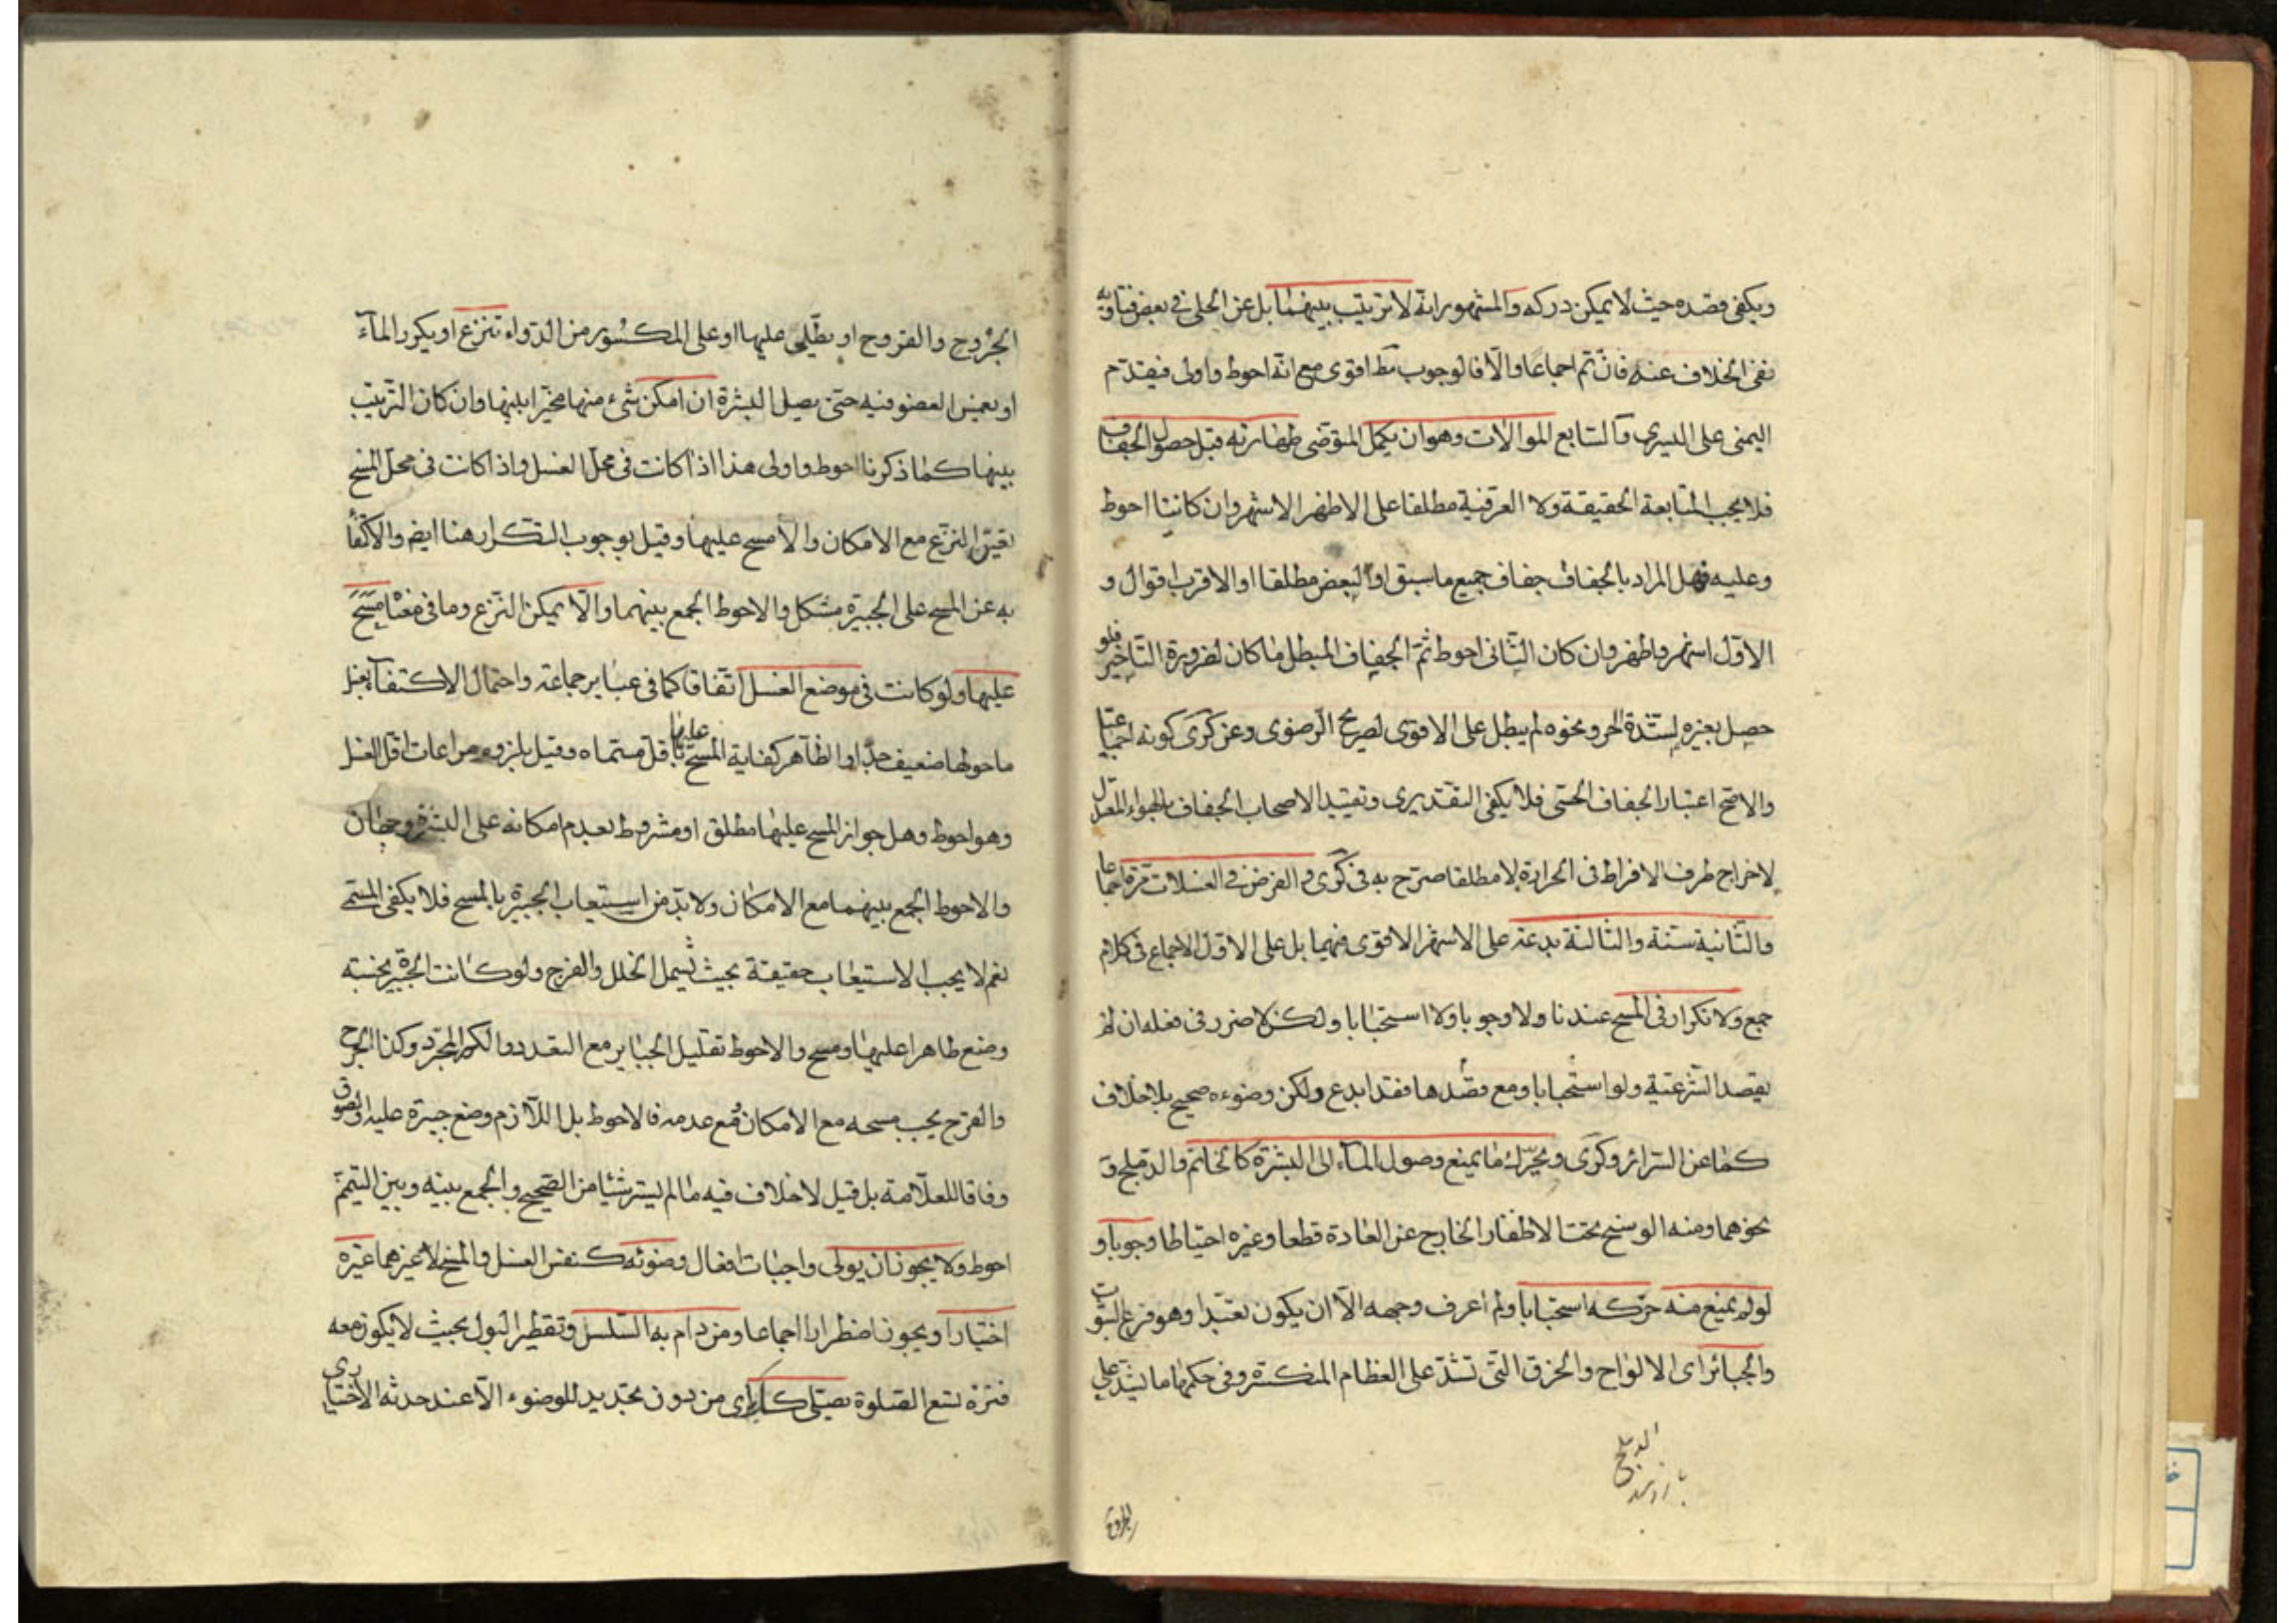 ويكفى قصده حيث لا يمكن دركه والمشهور انه لا ترتيب بينهما بل عن الحلى في بعض فتاويه
نفى الخلاف عنه فان تم اجماعا والا فالوجوب مط اقوى مع انه احوط واولى فيقدم
اليمنى على اليسرى والسابع الموالات وهو ان يكمل المتوضى طهارته قبل حصول الجفاف
فلا يجب المتابعة الحقيقة ولا العرفية مطلقا على الاظهر الاشهر وان كانتا احوط
وعليه فهل المراد بالجفاف جفاف جميع ما سبق او البعض مطلقا او الاقرب اقوال و
الاول اشهر واظهر وان كان الثانى احوط ثم الجفاف المبطل ما كان لضرورة التاخير فلو
حصل بغيره لشدة الحر ونحوه لم يبطل على الاقوى لصريح الرضوى وعن كرى كونه اجماعيا
والاصح اعتبار الجفاف الحسى فلا يكفى التقديرى وتقييد الاصحاب الجفاف بالهواء المعتدل
لاخراج طرف الافراط فى الحرارة لا مطلقا صرح به فى كرى و الفرض في الغسلات مرة اجماعا
والثانية سنة والثالثة بدعة على الاشهر الاقوى فيهما بل على الاول الاجماع فى كلام
جمع ولا تكرار فى المسح عندنا ولا وجوبا ولا استحبابا ولكن لا ضرر فى فعله ان لم
يقصد الشرعية ولو استحبابا ومع قصدها فقد ابدع ولكن وضوءه صحيح بلا خلاف
كما عن السرائر وكرى و يحرك ما يمنع وصول الماء الى البشرة كالخاتم والدملج و
نحوهما ومنه الوسخ تحت الاظفار الخارج عن العادة قطعا وغيره احتياطا وجوبا و
لو لم يمنع منه حركه استحبابا ولم اعرف وجهه الا ان يكون تعبدا وهو فرع الثبوت
والجبائر اى الالواح والخرق التى تشد على العظام المنكسرة وفى حكمها ما يشد على
الدملج
بازوبند
الجروح
الجروح والقروح او يطلى عليها او على المكسور من الدواء تنزع او يكرر الماء
او يغمس العضو فيه حتى يصل البشرة ان امكن شىء منها مخيرا بينها وان كان الترتيب
بينها كما ذكرنا احوط واولى هذا اذا كانت فى محل الغسل واذا كانت فى محل المسح
تعين النزع مع الامكان والا مسح عليها وقيل بوجوب التكرار هنا ايضم والاكتفا
به عن المسح على الجبيرة مشكل والاحوط الجمع بينهما والا يمكن النزع وما فى معناه مسح
عليها ولو كانت فى موضع الغسل اتفاقا كما فى عباير جماعة واحتمال الاكتفاء بغسل
ما حولها ضعيف جدا والظاهر كفاية المسح عليها باقل مسماه وقيل بلزوم مراعات اقل الغسل
وهو احوط وهل جواز المسح عليها مطلق او مشروط بعدم امكانه على البشرة وجهان
والاحوط الجمع بينهما مع الامكان ولا بد من استيعاب الجبيرة بالمسح فلا يكفى المسمى
نعم لا يجب الاستيعاب حقيقة بحيث يشمل الخلل والفرج ولو كانت الجبيرة نجسة
وضع طاهرا عليها ومسح والاحوط تقليل الجباير مع التعدد والكسر المجرد وكذا الجرح
والقرح يجب مسحه مع الامكان ومع عدمه فالاحوط بل اللازم وضع جبيرة عليه او لصوق
وفاقا للعلامة بل قيل لا خلاف فيه ما لم يستر شيئا من الصحيح و الجمع بينه وبين التيمم
احوط ولا يجوز ان يولى واجبات افعال وضوئه كنفس الغسل والمسح لا غيرهما غيره
اختيارا ويجوز اضطرارا اجماعا ومن دام به السلس وتقطير البول بحيث لا يكون معه
فترة تسع الصلوة يصلى كذلك اى من دون تجديد للوضوء الا عند حدثه الاختيارى